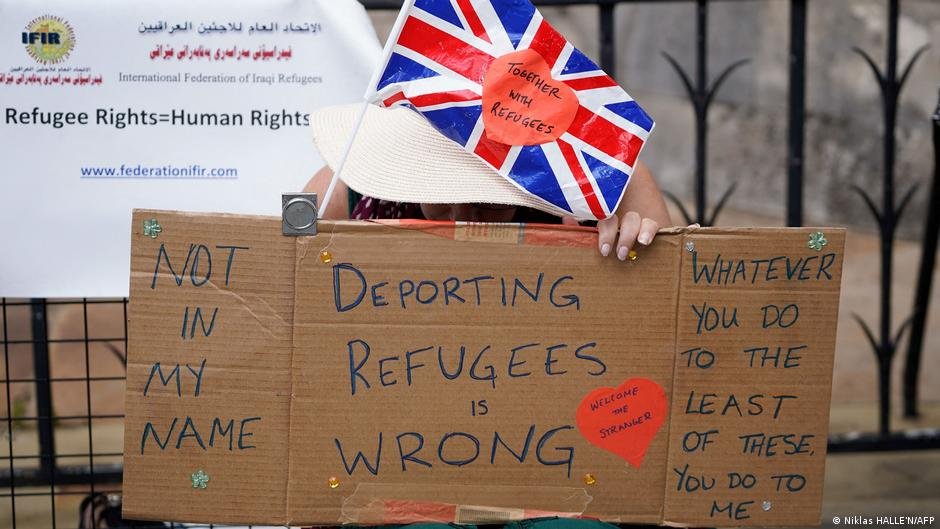 IFIR
الاتحاد العام للاجئين العراقيين
فیدراسیۆنی سەراسەری پەنابەرانی عێراقی
International Federation of Iraqi Refugees
Refugee Rights=Human Rights
www.federationifir.com
TOGETHER
WITH
REFUGEES
NOT
IN
MY
NAME
DEPORTING
REFUGEES
IS
WRONG
WELCOME
THE
STRANGER
WHATEVER
YOU DO
TO THE
LEAST
OF THESE,
YOU DO TO
ME
© Niklas HALLE'N/AFP